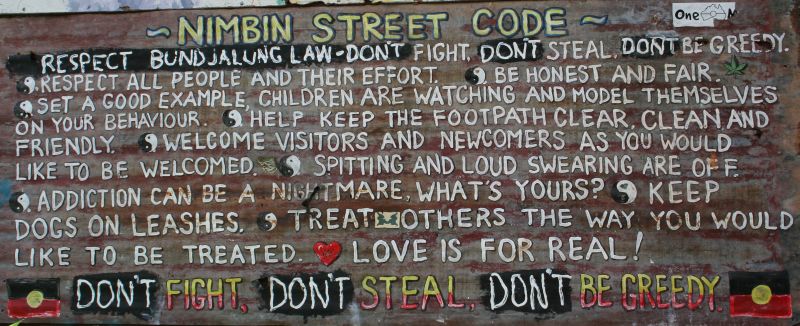 ~ NIMBIN STREET CODE ~
One M
RESPECT BUNDJALUNG LAW - DON'T FIGHT, DON'T STEAL, DON'T BE GREEDY.
RESPECT ALL PEOPLE AND THEIR EFFORT. BE HONEST AND FAIR.
SET A GOOD EXAMPLE, CHILDREN ARE WATCHING AND MODEL THEMSELVES
ON YOUR BEHAVIOUR. HELP KEEP THE FOOTPATH CLEAR, CLEAN AND
FRIENDLY. WELCOME VISITORS AND NEWCOMERS AS YOU WOULD
LIKE TO BE WELCOMED. SPITTING AND LOUD SWEARING ARE OFF.
ADDICTION CAN BE A NIGHTMARE, WHAT'S YOURS? KEEP
DOGS ON LEASHES. TREAT OTHERS THE WAY YOU WOULD
LIKE TO BE TREATED. LOVE IS FOR REAL!
DON'T FIGHT, DON'T STEAL, DON'T BE GREEDY.